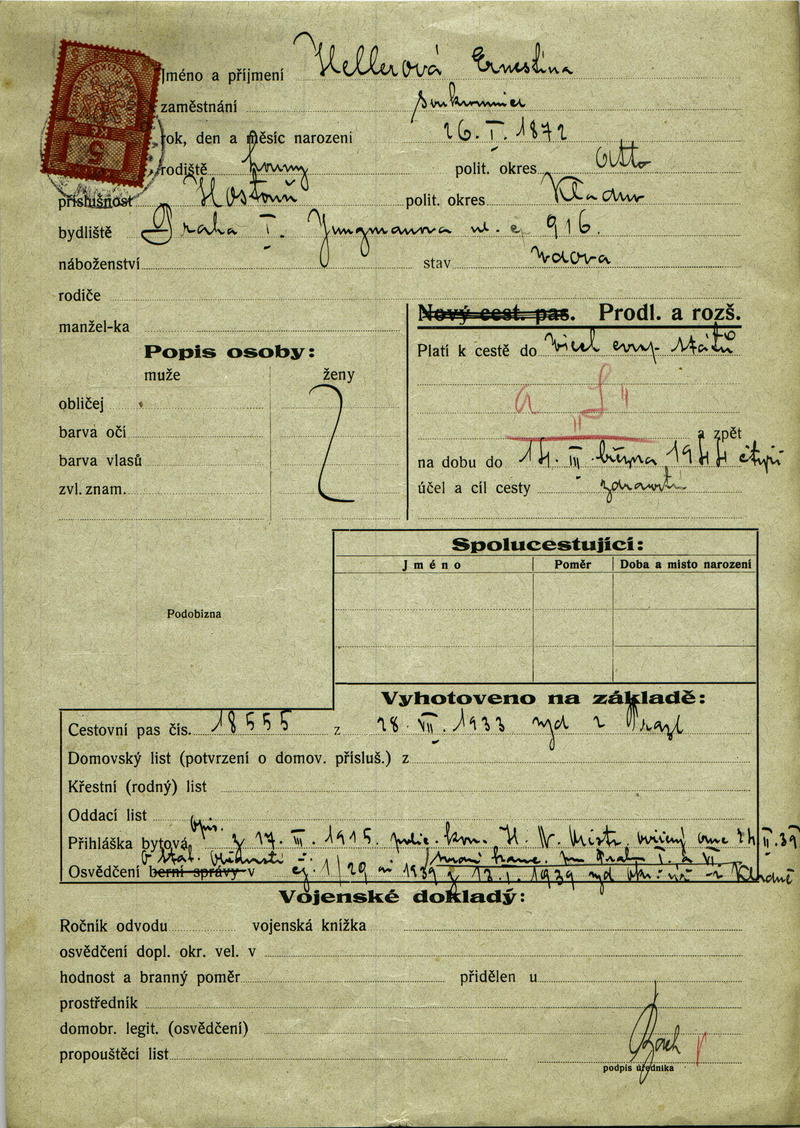 Jméno a příjmení Hellerová Ernestina
zaměstnání soukromnice
rok, den a měsíc narození 26. I. 1872
rodiště polit. okres
příslušnost Hostouň polit. okres Kladno
bydliště Praha I. Jungmannova ul. č. 916.
náboženství stav vdova
rodiče
manžel-ka
Nový cest. pas. Prodl. a rozš.
Platí k cestě do všech evrp. států
a „S“
a zpět
na dobu do 14. III. března 1944 čtyři
účel a cíl cesty zdravot.
Popis osoby:
muže ženy
obličej
barva očí
barva vlasů
zvl. znam.
Spolucestující:
Jméno Poměr Doba a místo narození
Podobizna
Vyhotoveno na základě:
Cestovní pas čís. 18555 z 28. VII. 1933 vyd v Praze
Domovský list (potvrzení o domov. přísluš.) z
Křestní (rodný) list
Oddací list
Přihláška bytová z 17. III. 1915
Osvědčení berní správy v čj. 1/29 1939 z 12. I. 1939 vyd v Kladně
Vojenské doklady:
Ročník odvodu vojenská knížka
osvědčení dopl. okr. vel. v
hodnost a branný poměr přidělen u
prostředník
domobr. legit. (osvědčení)
propouštěcí list
podpis úředníka
5 Kč